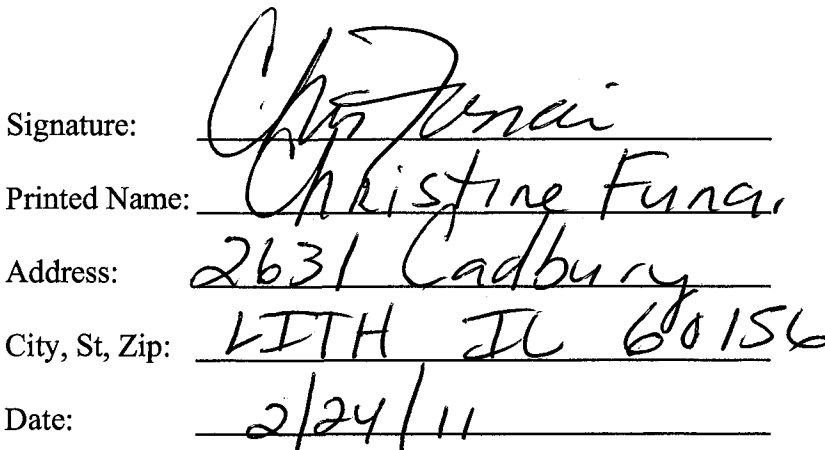 Signature: Chris Funai
Printed Name: Christine Funai
Address: 2631 Cadbury
City, St, Zip: LITH IL 60156
Date: 2/24/11